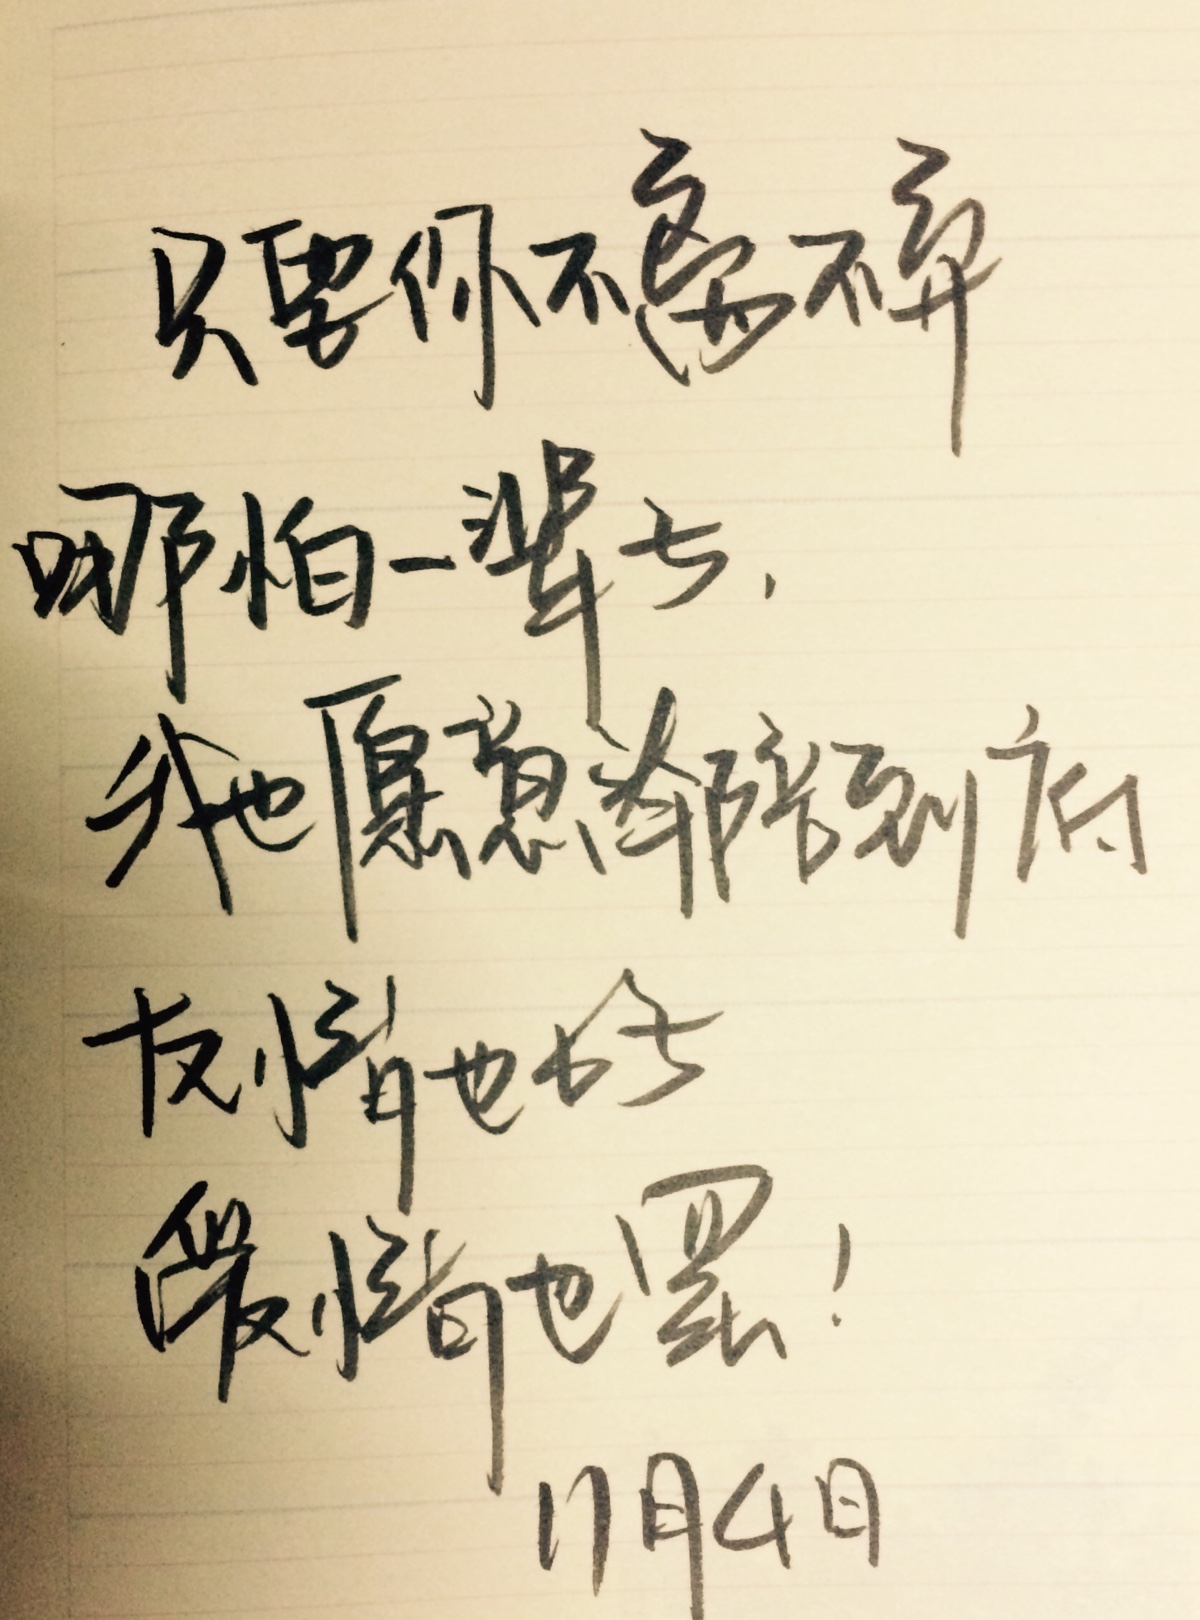 只要你不离不弃
哪怕一辈子，
我也愿意奉陪到底
友情也好
爱情也罢！
11月4日